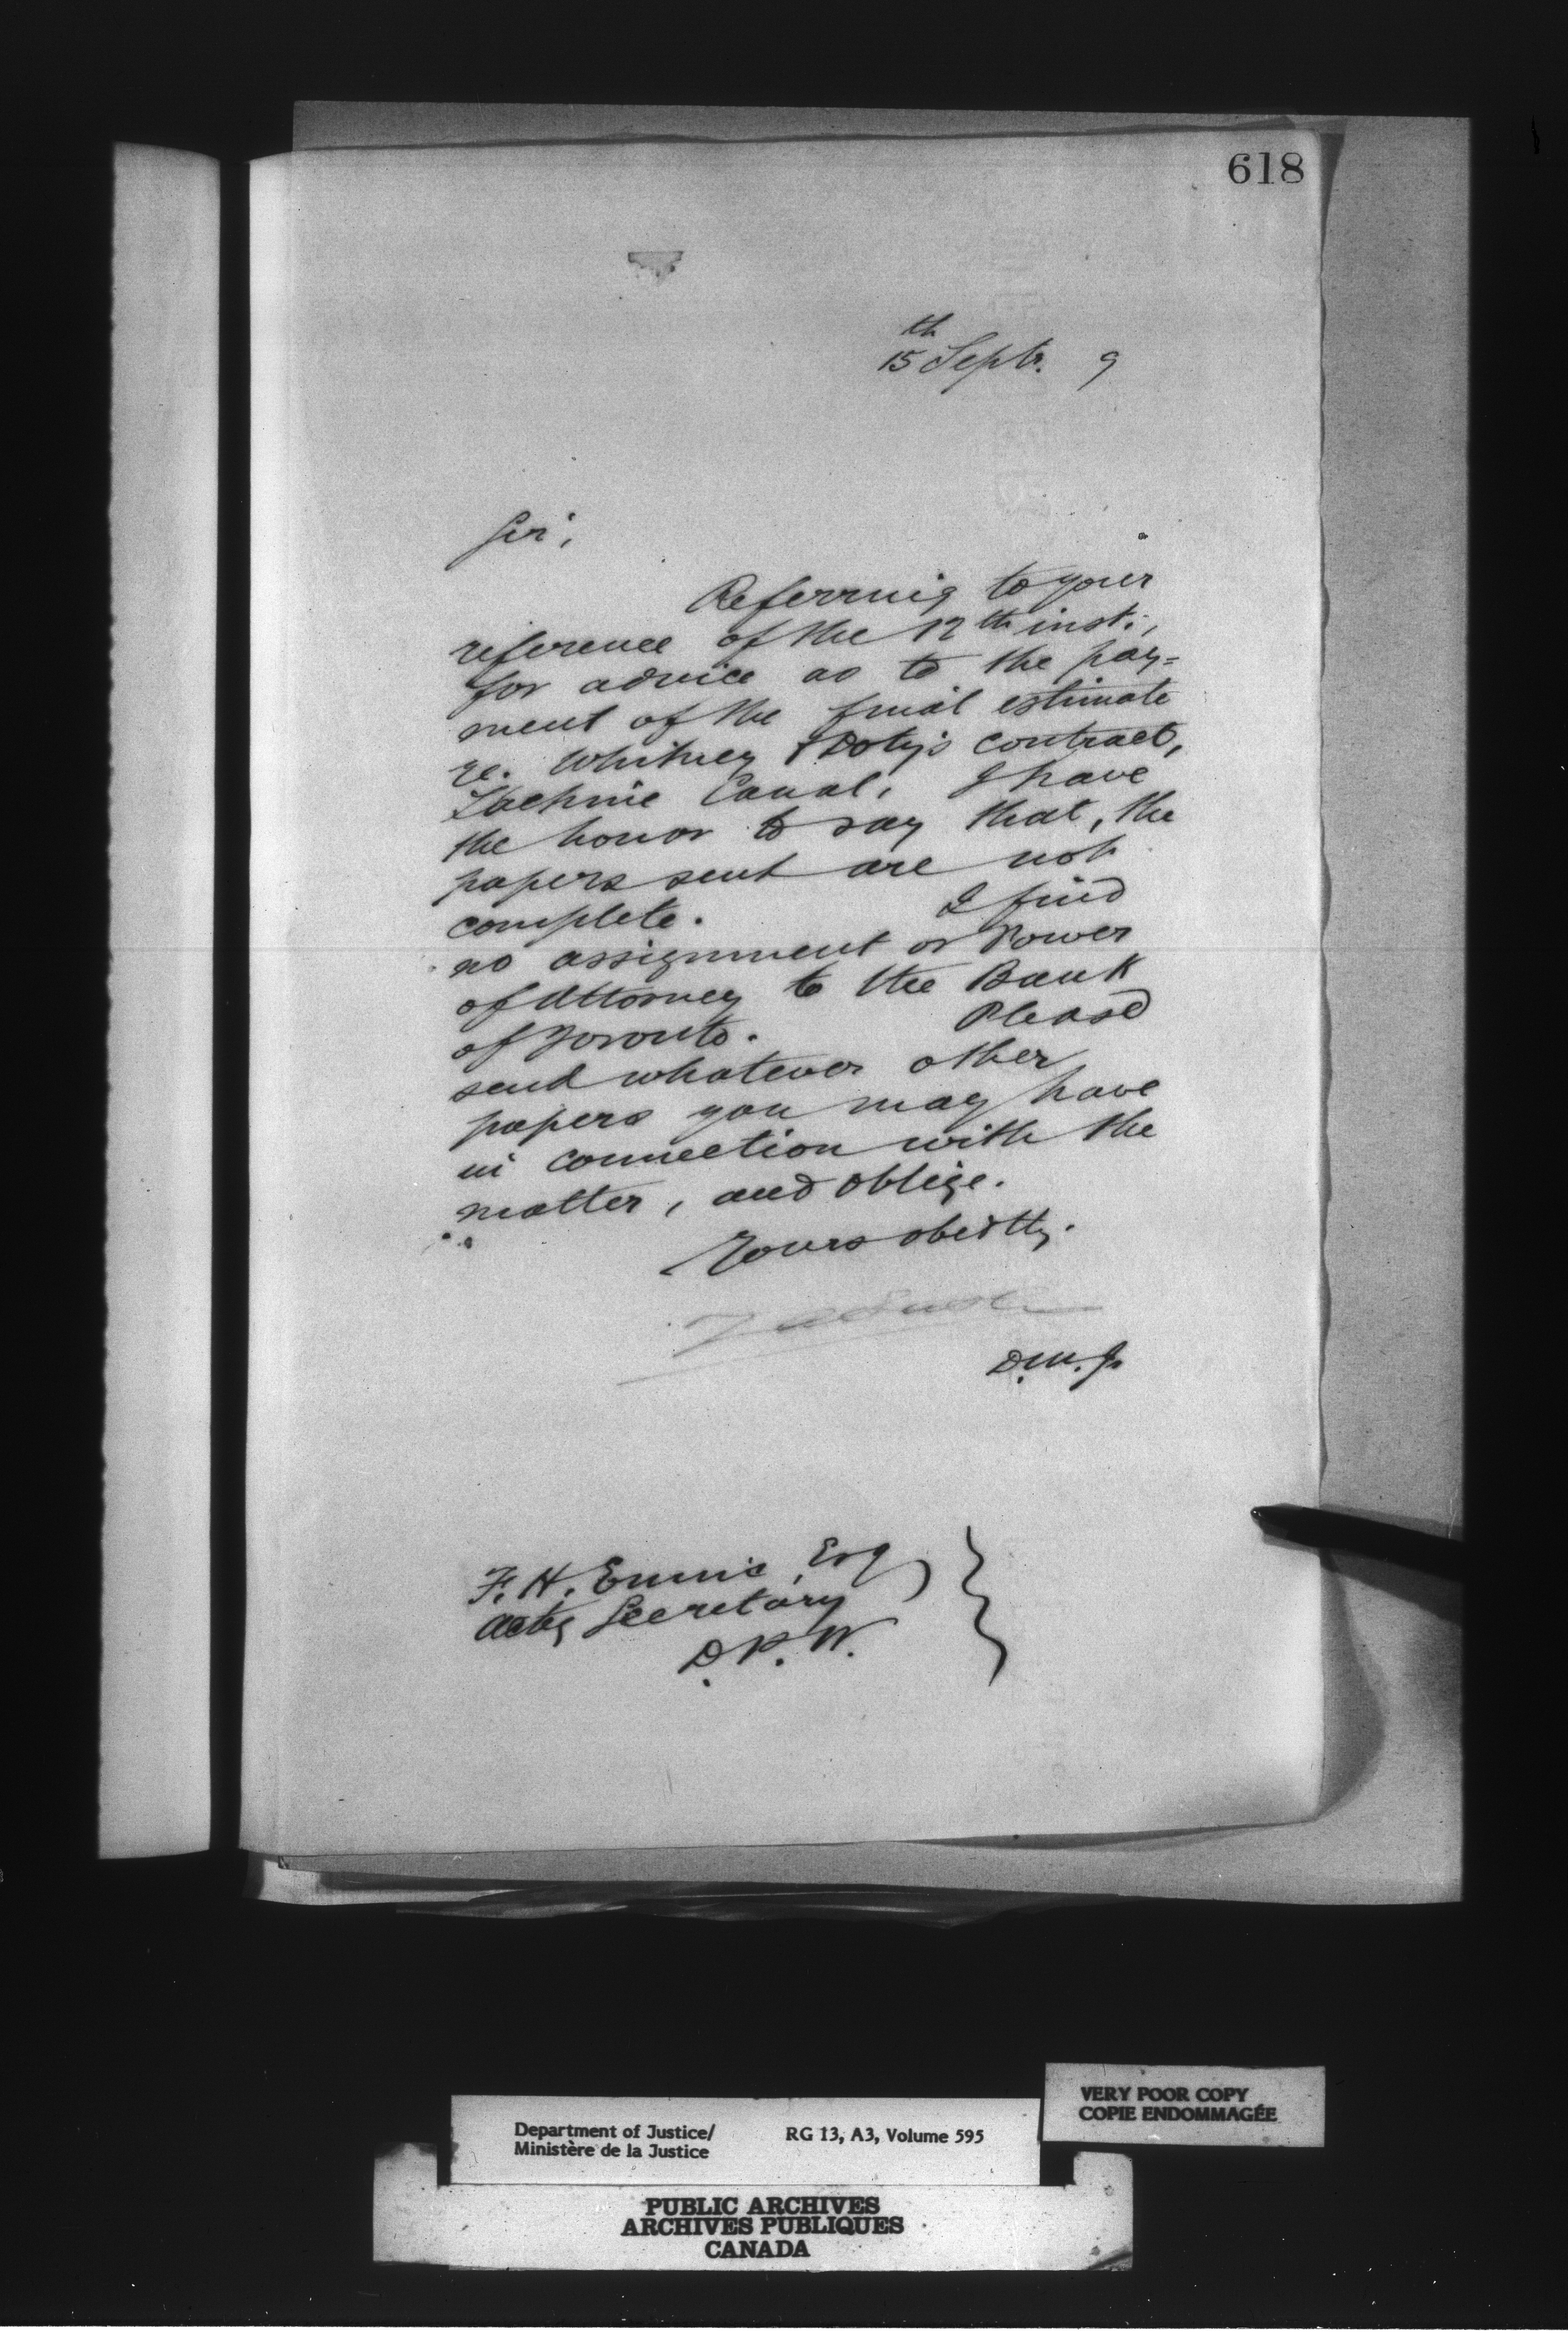 618
15th Septr. 9
Sir,
Referring to your
reference of the 12th inst.,
for advice as to the pay=
ment of the final estimate
re. Whitney & Doty's contract,
Lachine Canal, I have
the honor to say that, the
papers sent are not
complete. I find
no assignment or Power
of Attorney to the Bank
of Toronto. Please
send whatever other
papers you may have
in connection with the
matter, and oblige.
Yours obedtly.
D.M.J.
F. H. Ennis, Esq
Actg Secretary
D.P.W.
VERY POOR COPY
COPIE ENDOMMAGÉE
Department of Justice/ RG 13, A3, Volume 595
Ministère de la Justice
PUBLIC ARCHIVES
ARCHIVES PUBLIQUES
CANADA